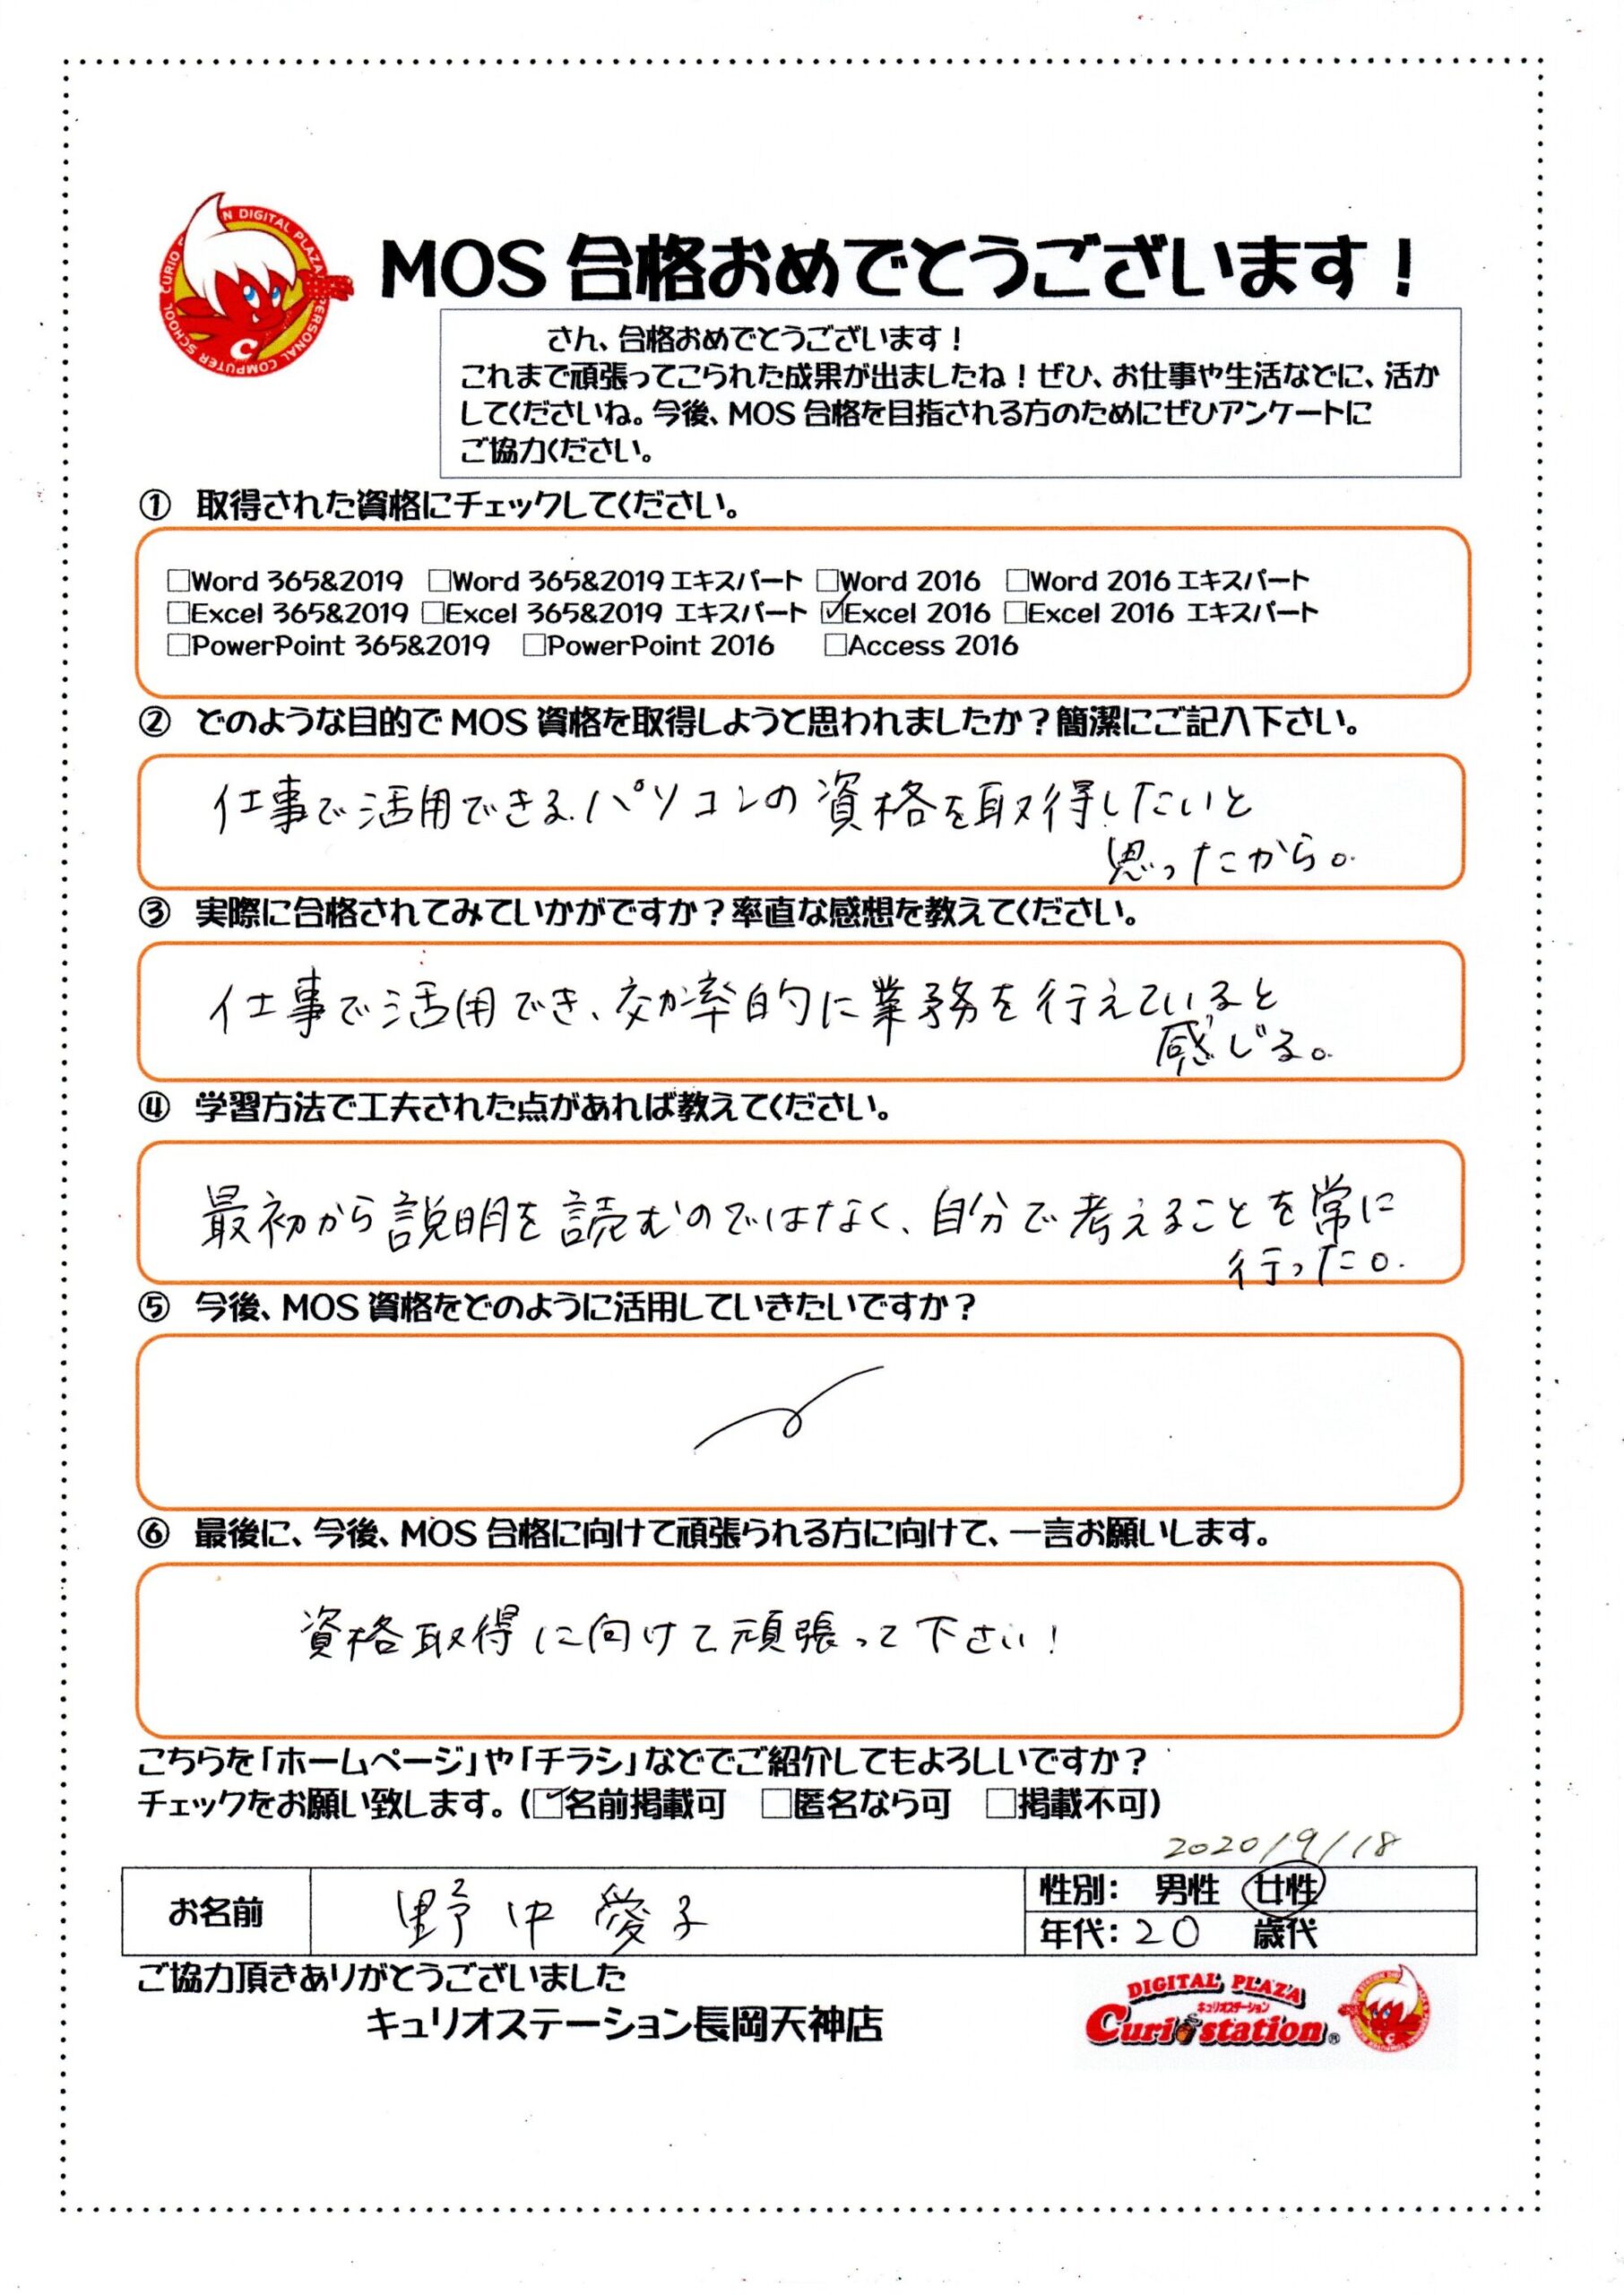 CURIO STATION DIGITAL PLAZA PERSONAL COMPUTER SCHOOL
MOS 合格おめでとうございます！
さん、合格おめでとうございます！
これまで頑張ってこられた成果が出ましたね！ぜひ、お仕事や生活などに、活か
してくださいね。今後、MOS 合格を目指される方のためにぜひアンケートに
ご協力ください。
① 取得された資格にチェックしてください。
□Word 365&2019 □Word 365&2019 エキスパート □Word 2016 □Word 2016 エキスパート
□Excel 365&2019 □Excel 365&2019 エキスパート ☑Excel 2016 □Excel 2016 エキスパート
□PowerPoint 365&2019 □PowerPoint 2016 □Access 2016
② どのような目的で MOS 資格を取得しようと思われましたか？簡潔にご記入下さい。
仕事で活用できるパソコンの資格を取得したいと
思ったから。
③ 実際に合格されてみていかがですか？率直な感想を教えてください。
仕事で活用でき、効率的に業務を行えていると
感じる。
④ 学習方法で工夫された点があれば教えてください。
最初から説明を読むのではなく、自分で考えることを常に
行った。
⑤ 今後、MOS 資格をどのように活用していきたいですか？
⑥ 最後に、今後、MOS 合格に向けて頑張られる方に向けて、一言お願いします。
資格取得に向けて頑張って下さい！
こちらを「ホームページ」や「チラシ」などでご紹介してもよろしいですか？
チェックをお願い致します。（☑名前掲載可 □匿名なら可 □掲載不可）
2020/9/18
お名前 野中愛子 性別： 男性 女性
年代：20 歳代
ご協力頂きありがとうございました
キュリオステーション長岡天神店
DIGITAL PLAZA
キュリオステーション
Curio station®